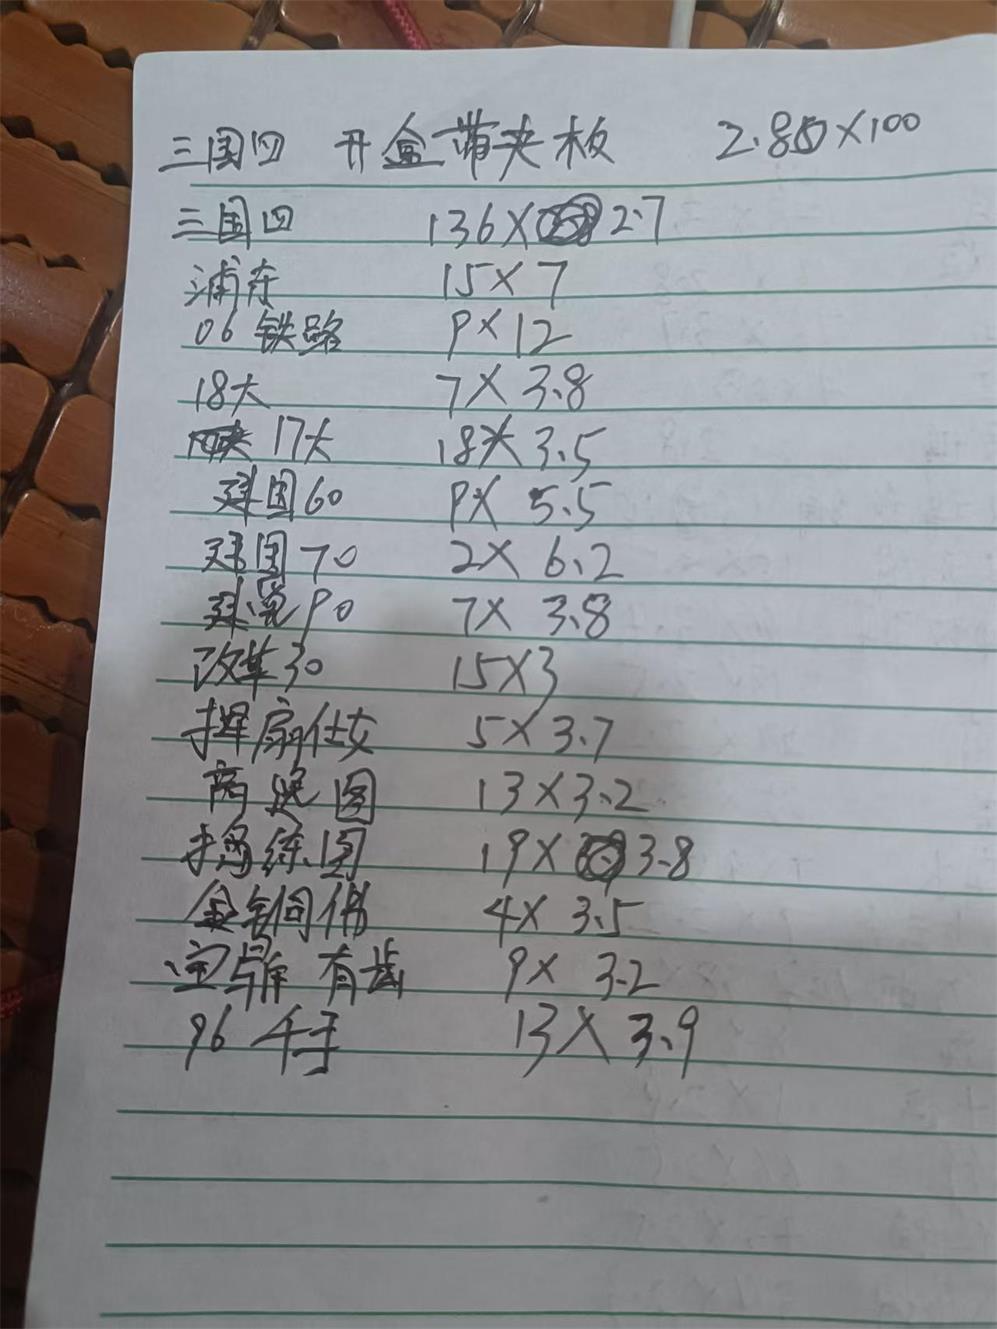 三国四 开盒带夹板 2.80×100
三国四 136× 2.7
浦东 15×7
06铁路 9×12
18大 7×3.8
17大 18×3.5
建国60 9×5.5
建国70 2×6.2
建党90 7×3.8
改革30 15×3
挥扇仕女 5×3.7
高逸图 13×3.2
捣练图 19× 3.8
金铜佛 4×3.5
有齿 9×3.2
96千手 13×3.9